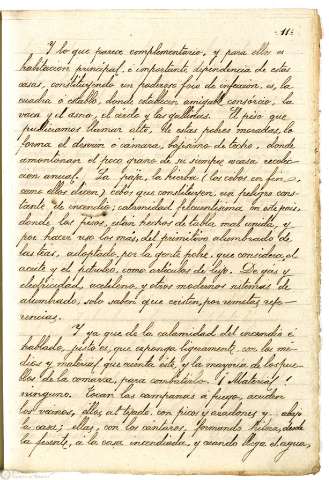 11
Y lo que parece complementario, y para ello es
habitación principal, é importante dependencia de estas
casas, constituyendo un poderoso foco de infección, es, la
cuadra ó establo, donde establecen amigable consorcio, la
vaca y el asno, el cerdo y las gallinas. El piso que
pudieramos llamar alto, de estas pobres moradas, lo
forma el desván ó cámara, bajísimo de techo, donde
amontonan el poco grano de su siempre escasa recolec-
cion anual. La paja, la hierba (los cebos en fin,
como ellos dicen) cebos que constituyen un peligro cons-
tante de incendio; calamidad frecuentísima en este pais,
donde los pisos, están hechos de tabla mal unida, y
por hacer uso los más, del primitivo alumbrado de
las téas, adoptado, por la gente pobre, que considera, el
aceite y el petróleo, como artículos de lujo. De gas y
electricidad, acetileno, y otros modernos sistemas de
alumbrado, solo saben que existen, por remotas refe-
rencias.
Y ya que de la calamidad del incendio é
hablado, justo es, que exponga ligeramente con los me-
dios y material que cuenta este, y la mayoria de los pue-
blos de la comarca, para combatirlo. ¡Material!
ninguno. Tocan las campanas á fuego, acuden
los vecinos, ellos al tejado, con picos y azadones y abajo
la casa; ellas, con los cántaros, formando hilera, desde
la fuente, á la casa incendiada, y cuando llega el agua,